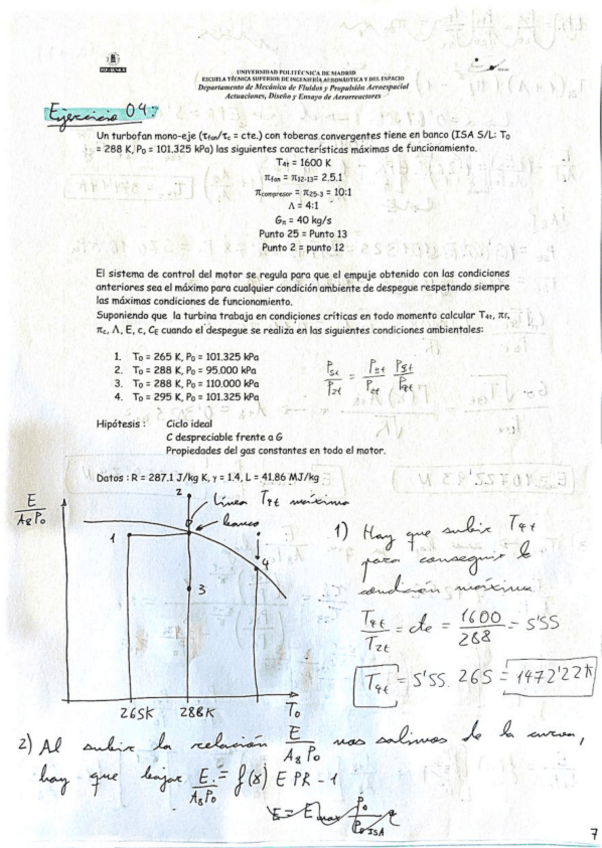 UNIVERSIDAD POLITÉCNICA DE MADRID
ESCUELA TÉCNICA SUPERIOR DE INGENIERÍA AERONÁUTICA Y DEL ESPACIO
Departamento de Mecánica de Fluidos y Propulsión Aeroespacial
Actuaciones, Diseño y Ensayo de Aerorreactores
Ejercicio 04:
Un turbofan mono-eje (τfan/τc = cte.) con toberas convergentes tiene en banco (ISA S/L: T₀
= 288 K, P₀ = 101.325 kPa) las siguientes características máximas de funcionamiento.
T4t = 1600 K
πfan = π12-13= 2.5.1
πcompresor = π25-3 = 10:1
Λ = 4:1
= 40 kg/s
Punto 25 = Punto 13
Punto 2 = punto 12
El sistema de control del motor se regula para que el empuje obtenido con las condiciones
anteriores sea el máximo para cualquier condición ambiente de despegue respetando siempre
las máximas condiciones de funcionamiento.
Suponiendo que la turbina trabaja en condiciones críticas en todo momento calcular T4t, πf,
πc, Λ, E, c, CE cuando el despegue se realiza en las siguientes condiciones ambientales:
1. T₀ = 265 K, P₀ = 101.325 kPa
2. T₀ = 288 K, P₀ = 95.000 kPa
3. T₀ = 288 K, P₀ = 110.000 kPa
4. T₀ = 295 K, P₀ = 101.325 kPa
P5t/P2t = P5t/P4t P4t/P2t
Hipótesis : Ciclo ideal
C despreciable frente a G
Propiedades del gas constantes en todo el motor.
Datos : R = 287.1 J/kg K, γ = 1.4, L = 41.86 MJ/kg
E/A8P0
2
Línea T4t máxima
banco
1
4
3
265K 288K T0
1) Hay que subir T4t
para conseguir la
condición máxima
T4t/T2t = cte = 1600/288 = 5'55
T4t = 5'55. 265 = 1472'22K
2) Al subir la relación E/A8P0 nos salimos de la curva,
hay que bajar E/A8P0 = f(x) EPR - 1
7